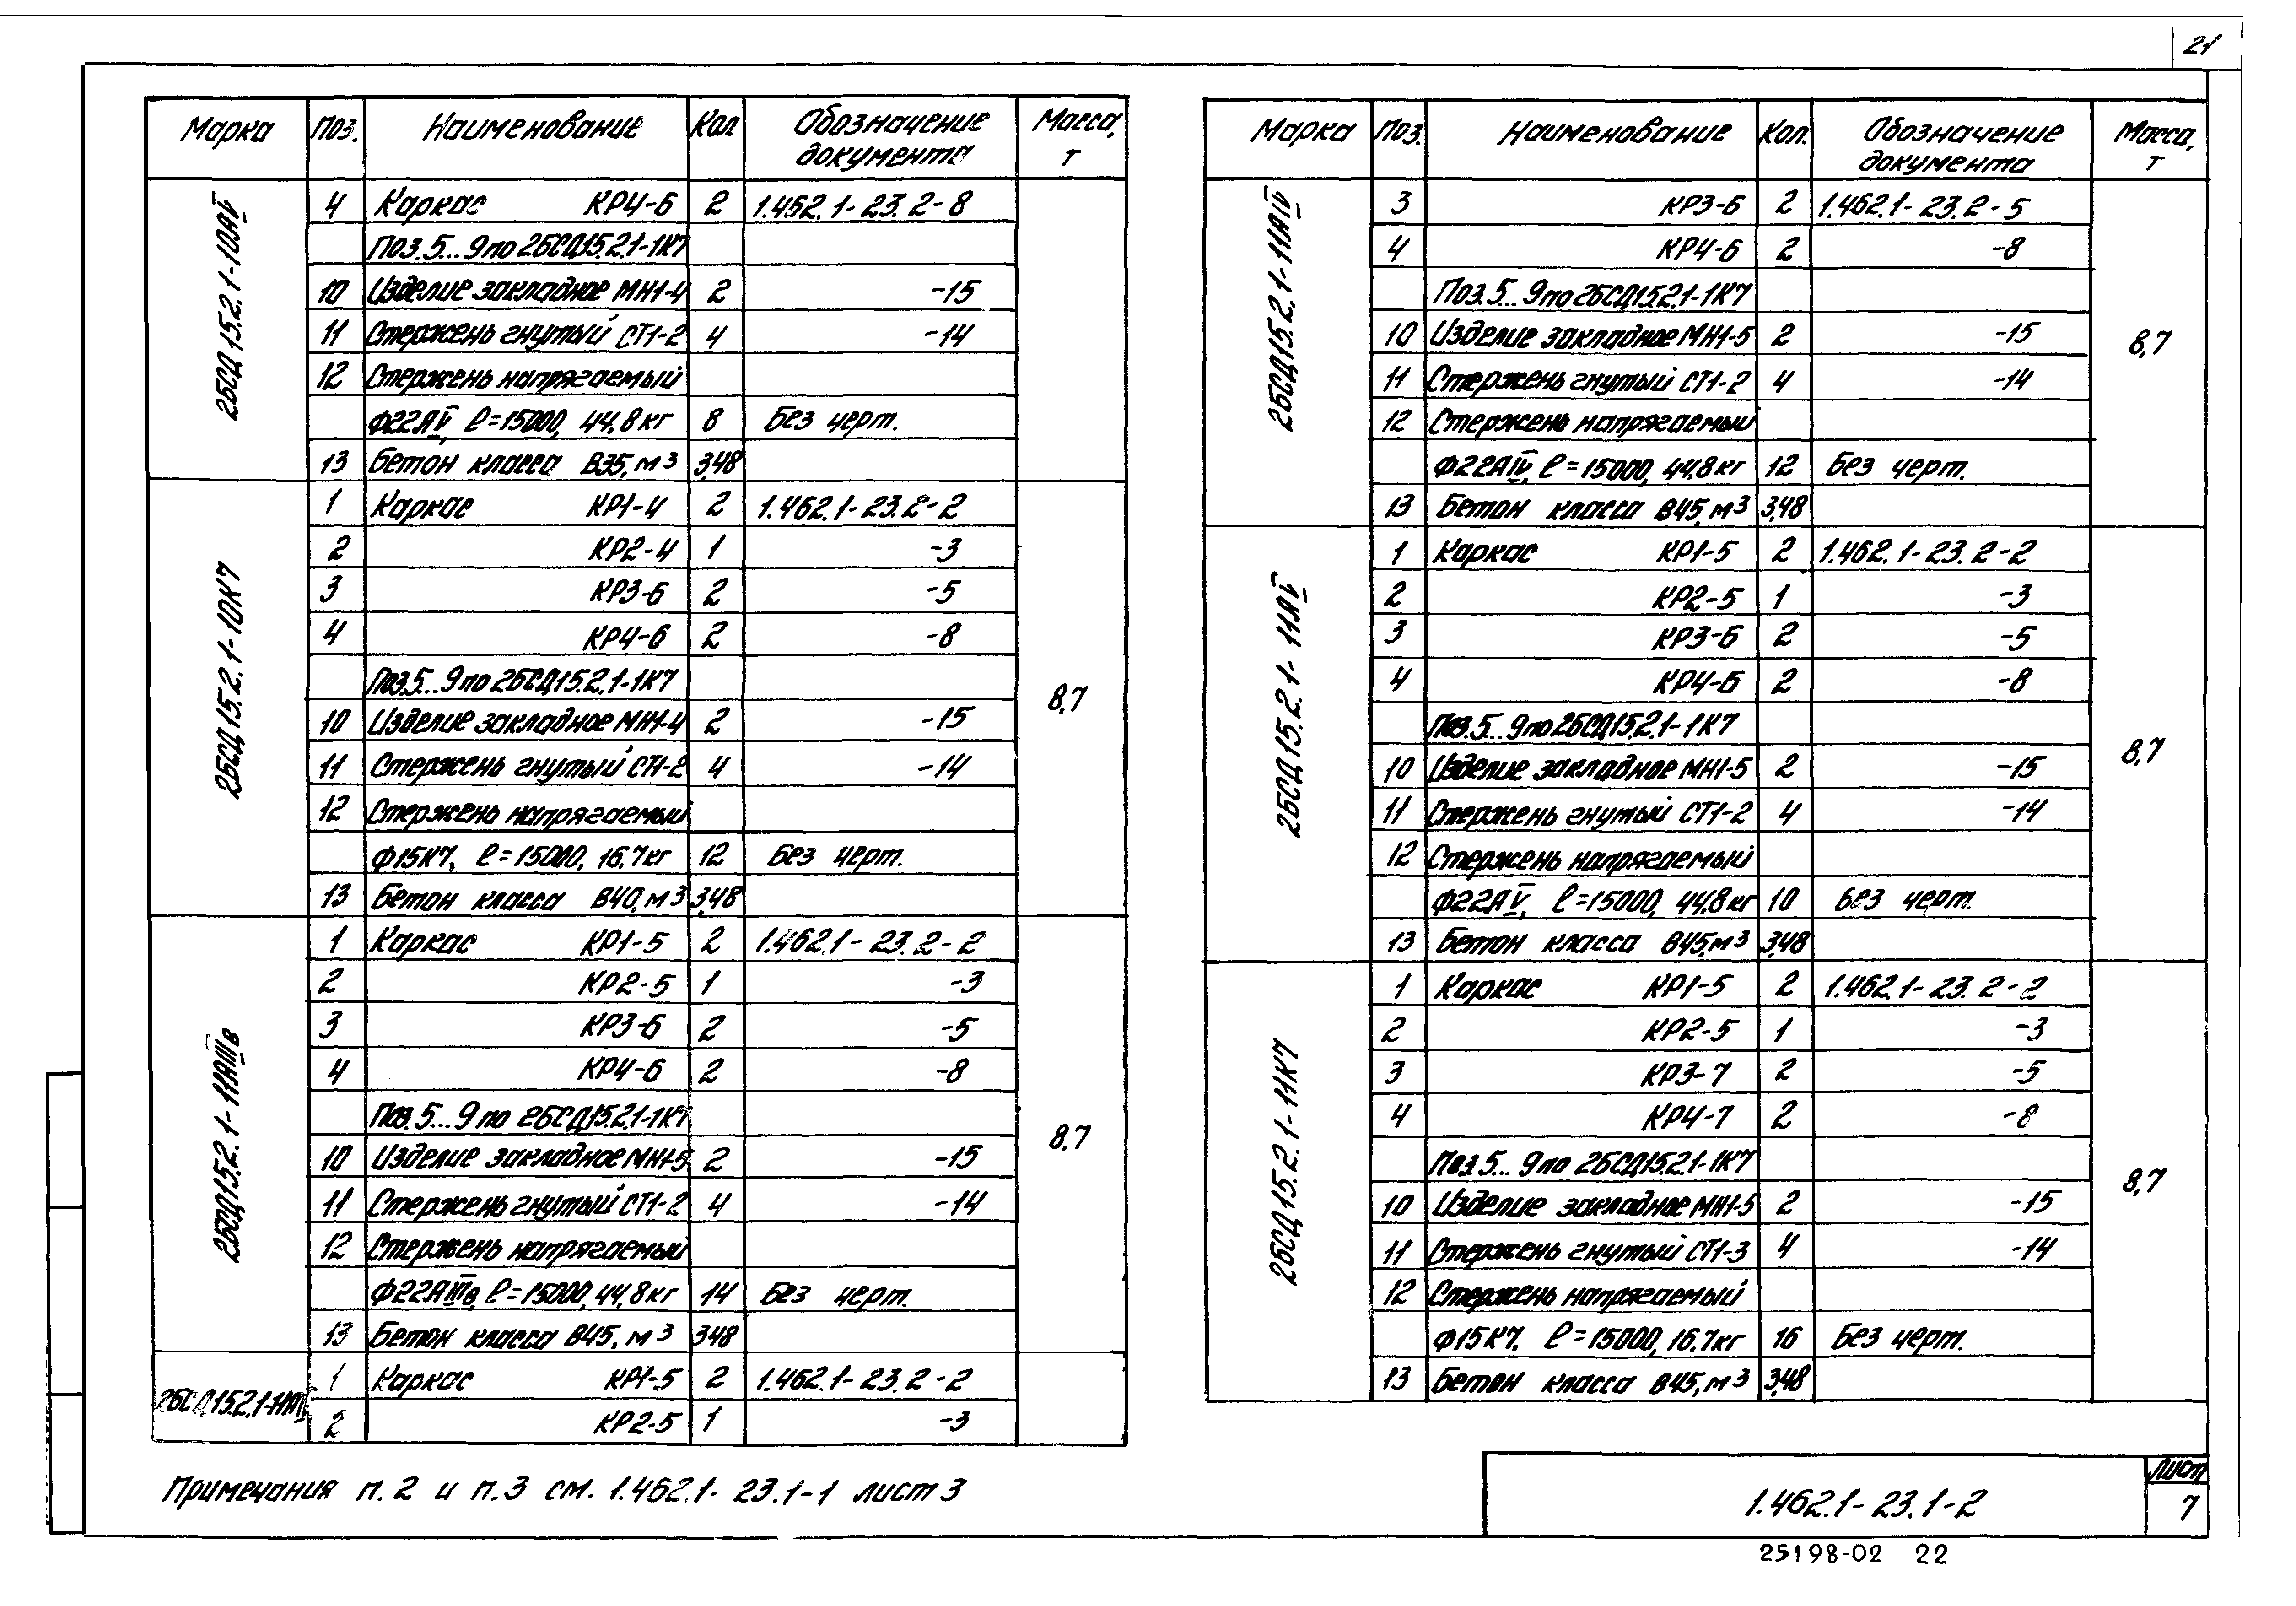 21
Марка Поз. Наименование Кол Обозначение документа Масса, т
2БСД15.2.1-10АV
4 Каркас КР4-6 2 1.462.1-23.2-8
Поз.5...9 по 2БСД15.2.1-1К7
10 Изделие закладное МН1-4 2 -15
11 Стержень гнутый СТ1-2 4 -14
12 Стержень напрягаемый
Ф22АV, ℓ=15000, 44.8кг 8 Без черт.
13 Бетон класса В35, м3 3,48
2БСД15.2.1-10К7
1 Каркас КР1-4 2 1.462.1-23.2-2
2 КР2-4 1 -3
3 КР3-6 2 -5
4 КР4-6 2 -8
Поз.5...9 по 2БСД15.2.1-1К7
10 Изделие закладное МН1-4 2 -15
11 Стержень гнутый СТ1-2 4 -14
12 Стержень напрягаемый
Ф15К7, ℓ=15000, 16.7кг 12 Без черт.
13 Бетон класса В40, м3 3,48
8,7
2БСД15.2.1-11АIIIв
1 Каркас КР1-5 2 1.462.1-23.2-2
2 КР2-5 1 -3
3 КР3-6 2 -5
4 КР4-6 2 -8
Поз.5...9 по 2БСД15.2.1-1К7
10 Изделие закладное МН1-5 2 -15
11 Стержень гнутый СТ1-2 4 -14
12 Стержень напрягаемый
Ф22АIIIв, ℓ=15000, 44,8кг 14 Без черт.
13 Бетон класса В45, м3 3,48
8,7
2БСД15.2.1-11АIV
1 Каркас КР1-5 2 1.462.1-23.2-2
2 КР2-5 1 -3
Марка Поз. Наименование Кол. Обозначение документа Масса, т
2БСД15.2.1-11АIV
3 КР3-6 2 1.462.1-23.2-5
4 КР4-6 2 -8
Поз.5...9 по 2БСД15.2.1-1К7
10 Изделие закладное МН1-5 2 -15
11 Стержень гнутый СТ1-2 4 -14
12 Стержень напрягаемый
Ф22АIV, ℓ=15000, 44,8кг 12 Без черт.
13 Бетон класса В45, м3 3,48
8,7
2БСД15.2.1-11АV
1 Каркас КР1-5 2 1.462.1-23.2-2
2 КР2-5 1 -3
3 КР3-6 2 -5
4 КР4-6 2 -8
Поз.5...9 по 2БСД15.2.1-1К7
10 Изделие закладное МН1-5 2 -15
11 Стержень гнутый СТ1-2 4 -14
12 Стержень напрягаемый
Ф22АV, ℓ=15000, 44,8кг 10 Без черт.
13 Бетон класса В45, м3 3,48
8,7
2БСД15.2.1-11К7
1 Каркас КР1-5 2 1.462.1-23.2-2
2 КР2-5 1 -3
3 КР3-7 2 -5
4 КР4-7 2 -8
Поз.5...9 по 2БСД15.2.1-1К7
10 Изделие закладное МН1-5 2 -15
11 Стержень гнутый СТ1-3 4 -14
12 Стержень напрягаемый
Ф15К7, ℓ=15000, 16.7кг 16 Без черт.
13 Бетон класса В45, м3 3,48
8,7
Примечания п.2 и п.3 см. 1.462.1-23.1-1 лист 3
1.462.1-23.1-2
Лист
7
25198-02 22